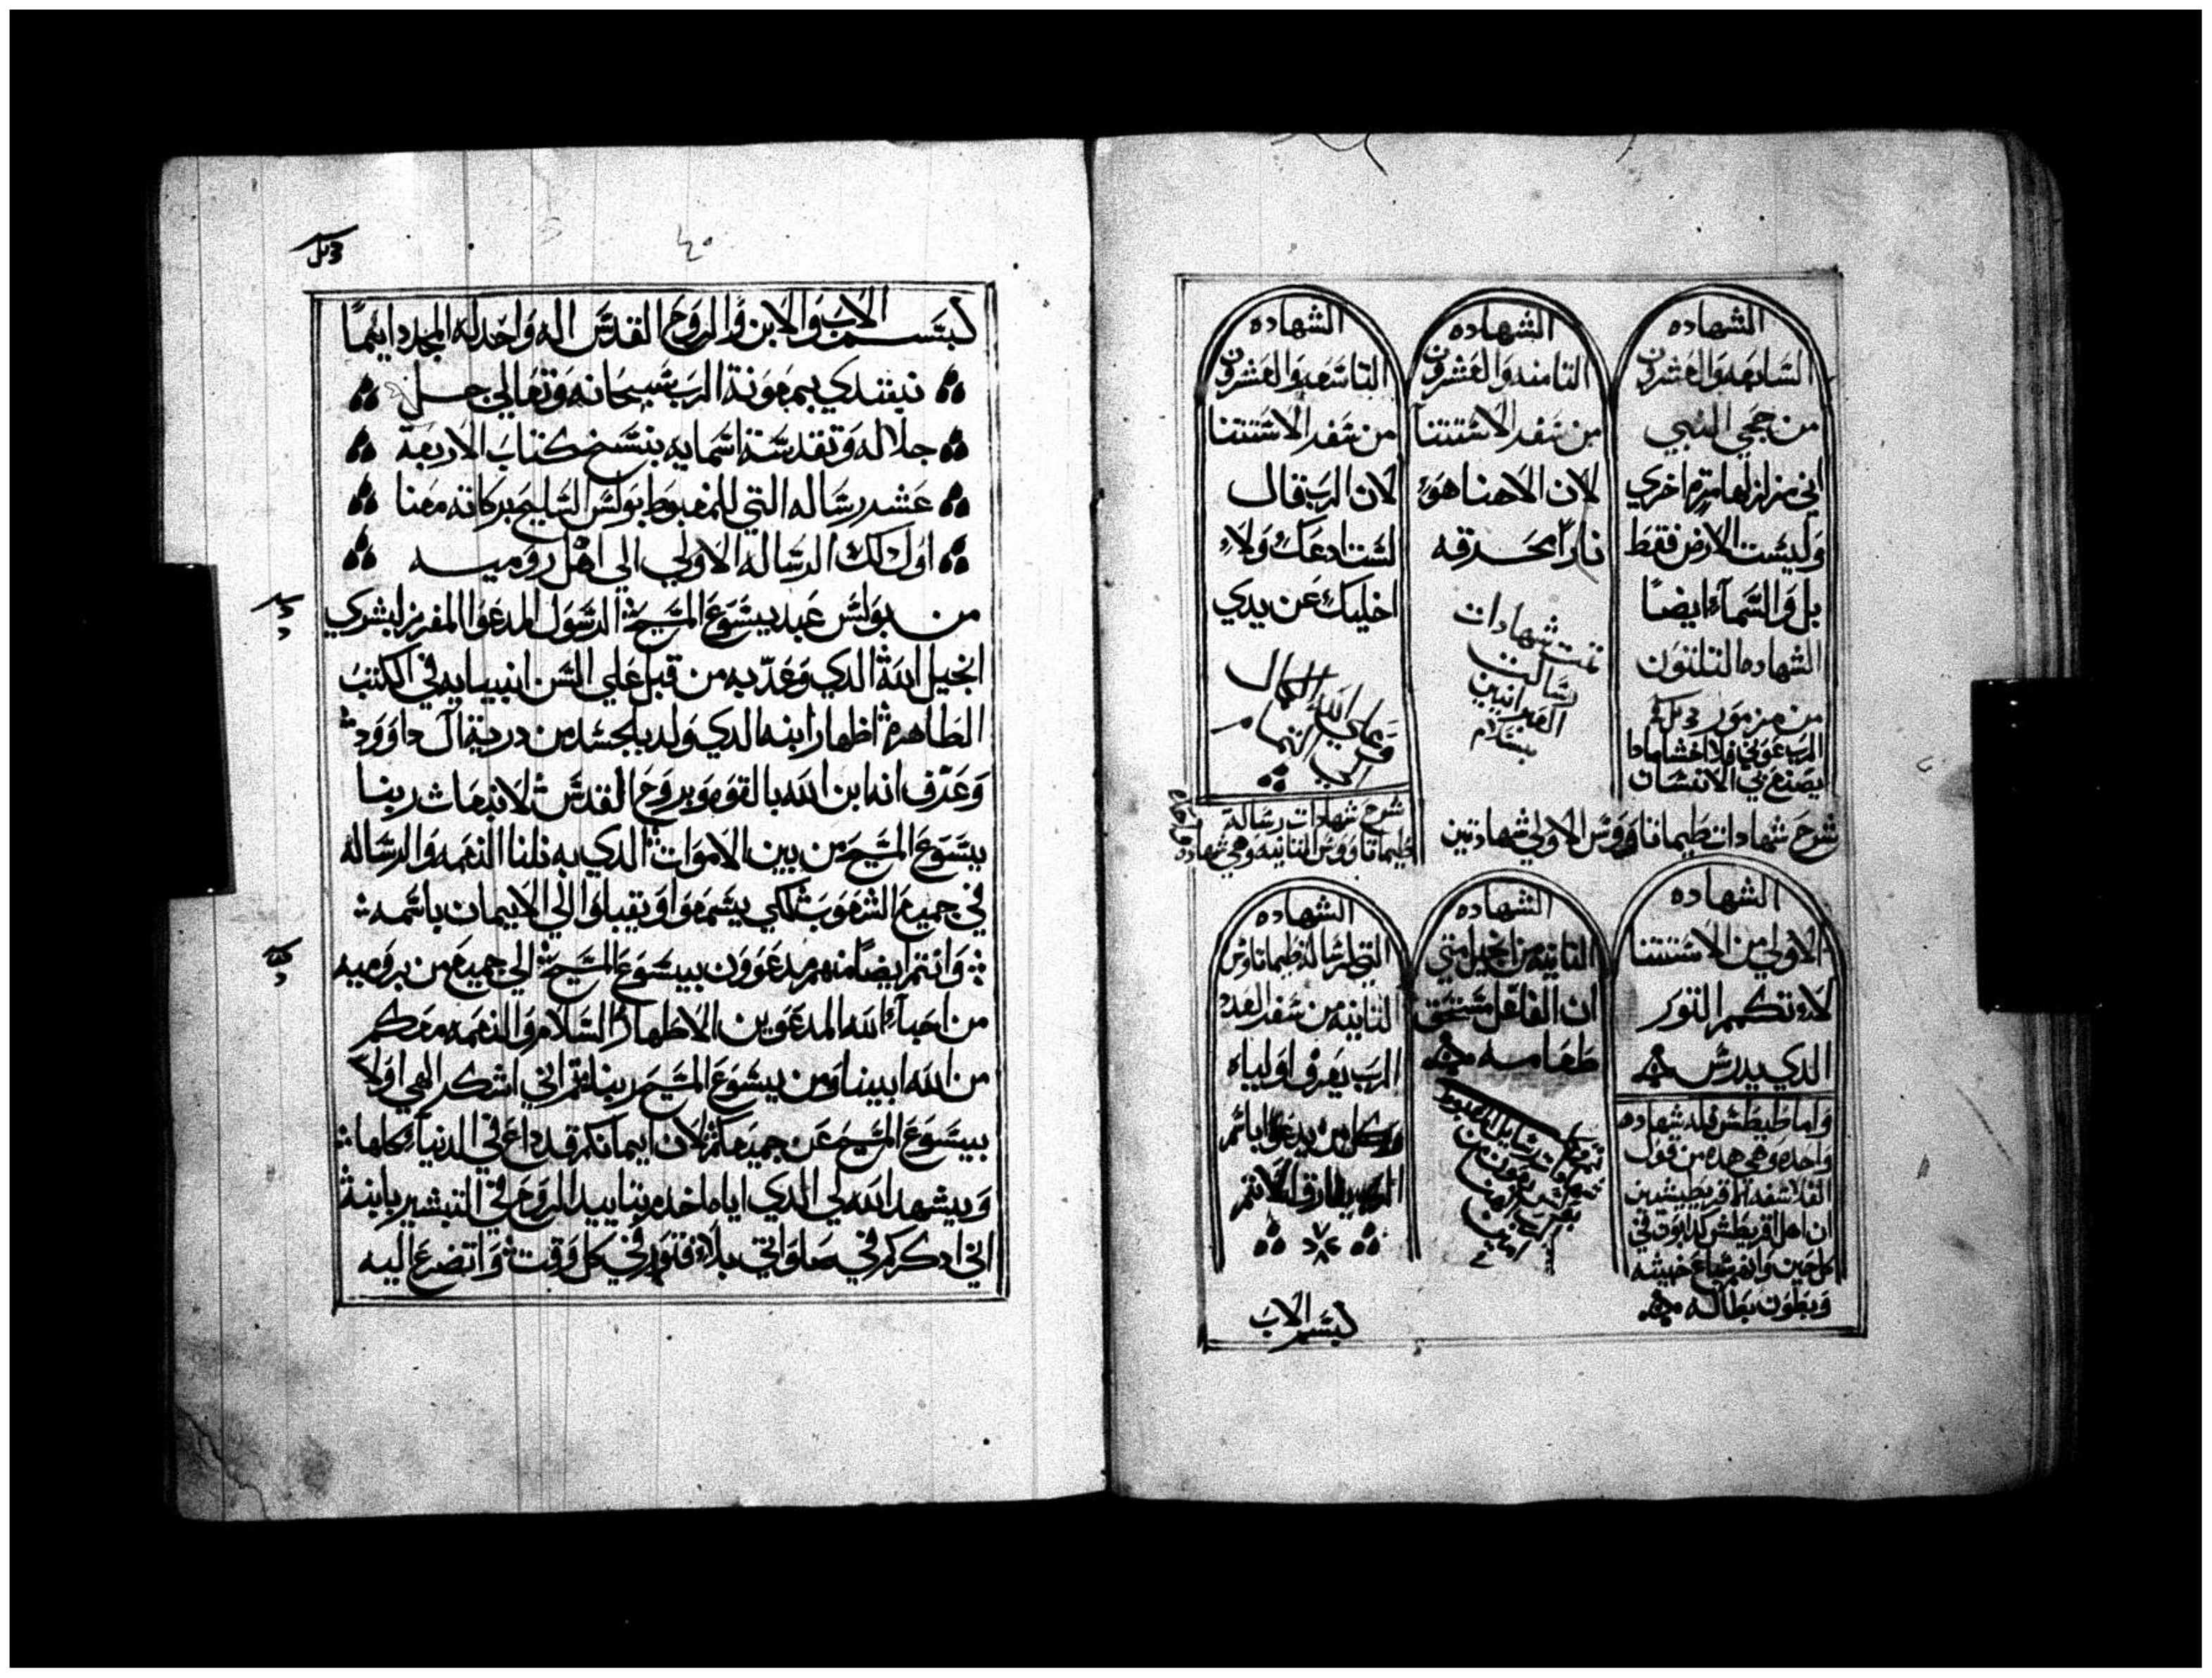 الشهاده
السابعه والعشرون
من حجي النبي
اني مزلزلها مره اخري
وليست الارض فقط
بل والسماء ايضًا
الشهاده التلتون
من مزمور
الرب عوني فلا اخشا مادا
يصنع بي الانسان
الشهاده
التامنه والعشرون
من سفر الاستتنا
لان الاهنا هو
نارًا محرقه
تمت شهادات
رسالت
العبرانيين
بسلام
الشهاده
التاسعه والعشرون
من سفر الاستتنا
لان الرب قال
لست ادعك ولا
اخليك عن يدي
وعلي الله الكمال
شرح شهادات طيماتاووس الاولي شهادتين
شرح شهادات رسالة
طيماتاووس التانيه وهي شهاده
الشهاده
الاولي من الاستتنا
لا تكمم التور
الدي يدرس
واما طيطس فله شهاده
واحده وهي هده من قول
الفلاسفه اقريطيشيين
ان اهل اقريطش كدابون في
كل حين وانهم سباع خبيثه
وبطون بطاله
الشهاده
التانيه من انجيل متي
ان الفاعل مستحق
طعامه
الشهاده
التي لرساله طيماتاوس
التانيه من سفر العدد
الرب يعرف اولياه
وكل من يدعوا باسم
بسم الاب
بسم الاب والابن والروح القدس اله واحد له المجد دايمًا
نبتدي بمعونة الرب سبحانه وتعالي جل
جلاله وتقدست اسمايه بنسخ كتاب الاربعة
عشر رساله التي للمغبوط بولس السليح بركاته معنا
اول دلك الرساله الاولي الي اهل روميه
من بولس عبد يسوع المسيح الرسول المدعوا المفرز لبشري
انجيل الله الدي وعد به من قبل علي السن انبيايه في الكتب
الطاهره اظهار ابنه الدي ولد بالجسد من درية آل داوود
وعرف انه ابن الله بالقوه وبروح القدس لانبعاث ربنا
يسوع المسيح من بين الاموات الدي به نلنا النعمه والرساله
في جميع الشعوب لكي يسمعوا ويقبلوا الي الايمان باسمه
وانتم ايضًا منهم مدعوون بيسوع المسيح الي جميع من بروميه
من احباء الله المدعوين الاطهار السلام والنعمه معكم
من الله ابينا ومن يسوع المسيح ربنا تم اني اشكر الهي اولا
بيسوع المسيح عن جميعكم لان ايمانكم قد داع في الدنيا كلها
ويشهد الله لي الدي اياه اخدم بتاييد الروح في التبشير بابنه
اني ادكركم في صلواتي بلا فتور في كل وقت واتضرع اليه